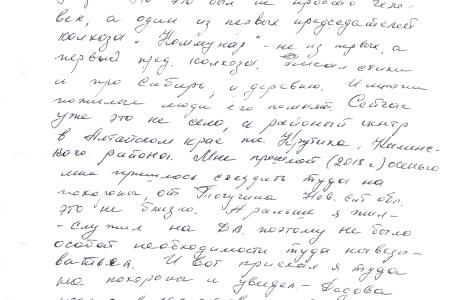 это был не просто чело-
век, а один из первых председателей
колхоза "Коммунар" - не из первых, а
первый пред. колхоза. Писал стихи
и про Сибирь, и деревню. И многие
пожилые люди его помнят. Сейчас
уже это не село, а районный центр
в Алтайском крае Крутиха, Каменс-
кого района. Мне прошлой (2018 г) осенью
мне пришлось съездить туда на
похороны от Тогучина Нов. сиб обл.
это не близко. А раньше я жил-
- служил на ДВ, поэтому не было
особой необходимости туда наведы-
ваться. И вот приехал я туда
на похороны и увидел - дедова